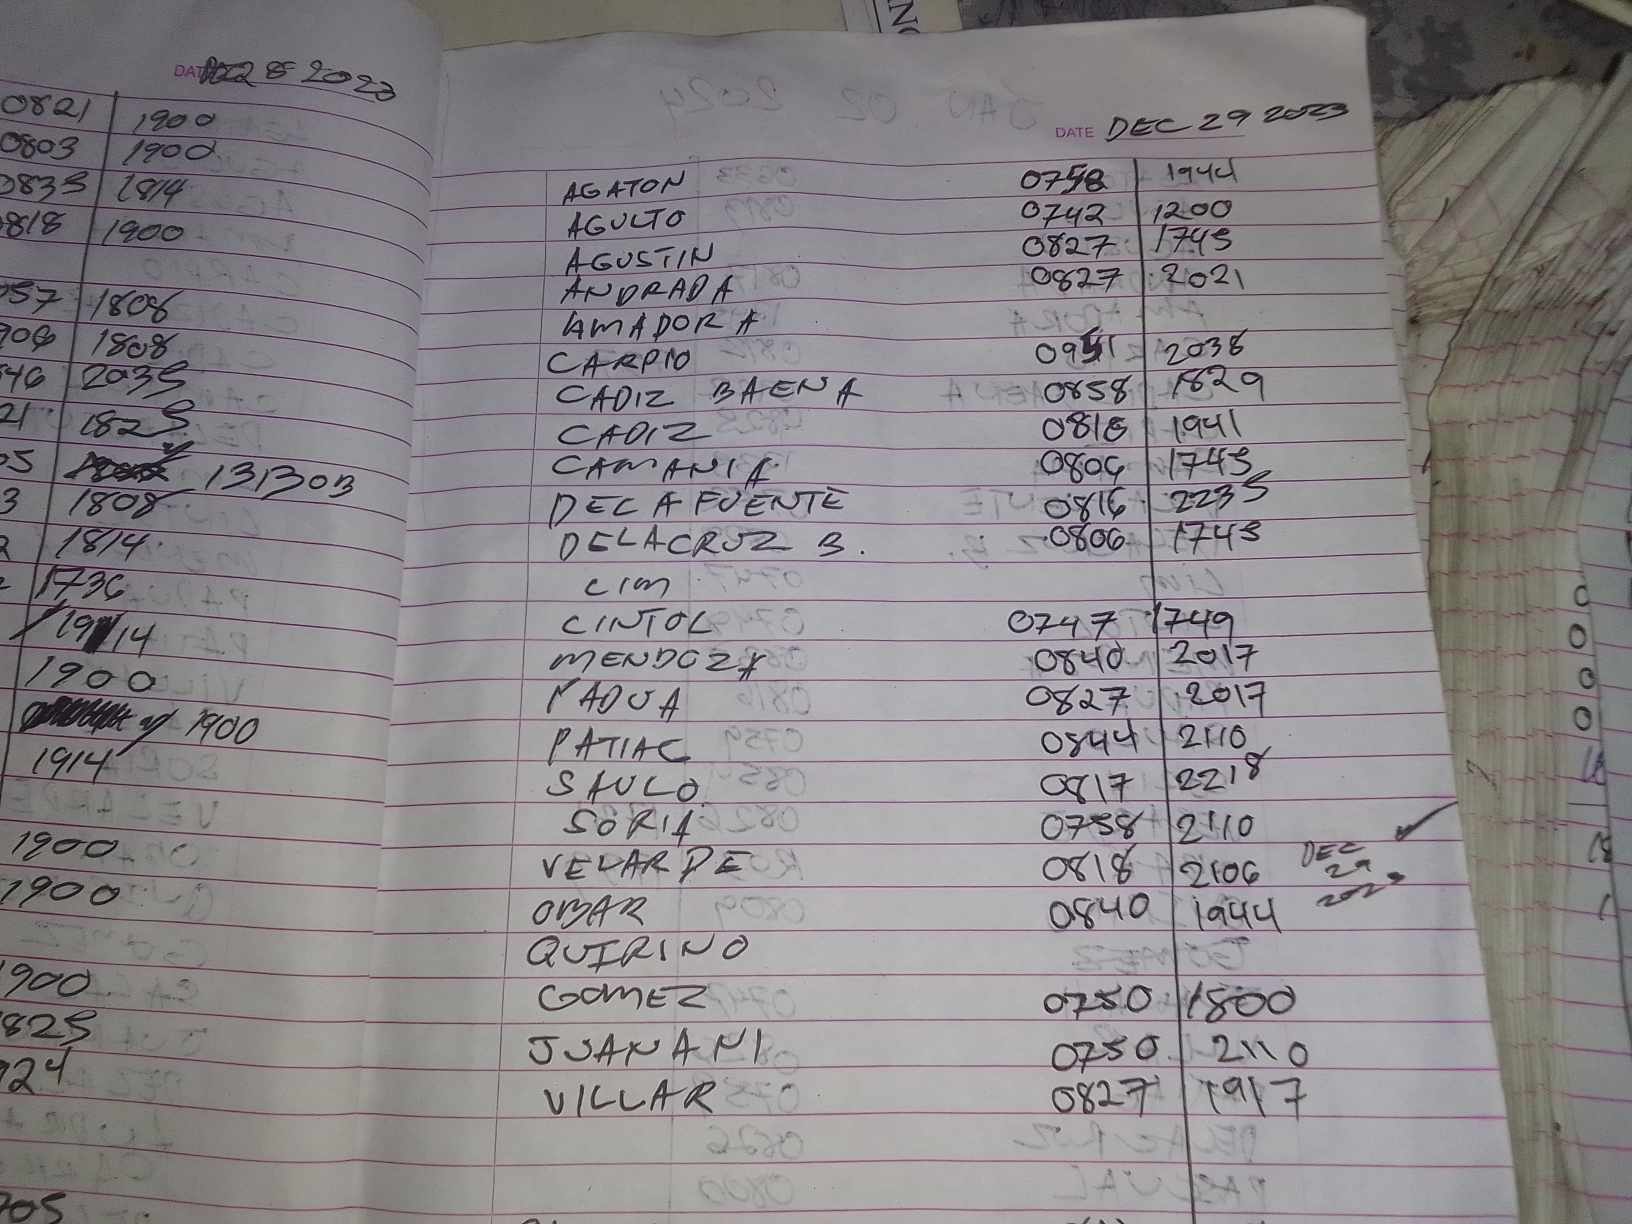 DEC 28 2023
0821 1900
0803 1900
0835 1814
0818 1900
57 1808
906 1808
46 2035
21 1825
05 131303
3 1808
2 1814
1736
1914
1900
1900
1914
1900
1900
1900
825
924
705
DATE DEC 29 2023
AGATON 0758 1944
AGULTO 0742 1200
AGUSTIN 0827 1745
ANDRADA 0827 2021
AMADORA
CARPIO 0951 2038
CADIZ BAENA 0858 1829
CADIZ 0818 1941
CAMANIA 0806 1745
DELA FUENTE 0816 2235
DELACRUZ B. 0806 1745
LIM
LINTOL 0747 1749
MENDOZA 0840 2017
PADUA 0827 2017
PATIAG 0844 2110
SAULO 0817 2218
SORIA 0758 2110
VELARDE 0818 2106
DEC
29
2023
OBAR 0840 1944
QUIRINO
GOMEZ 0750 1800
JUANANI 0750 2110
VILLAR 0827 1917